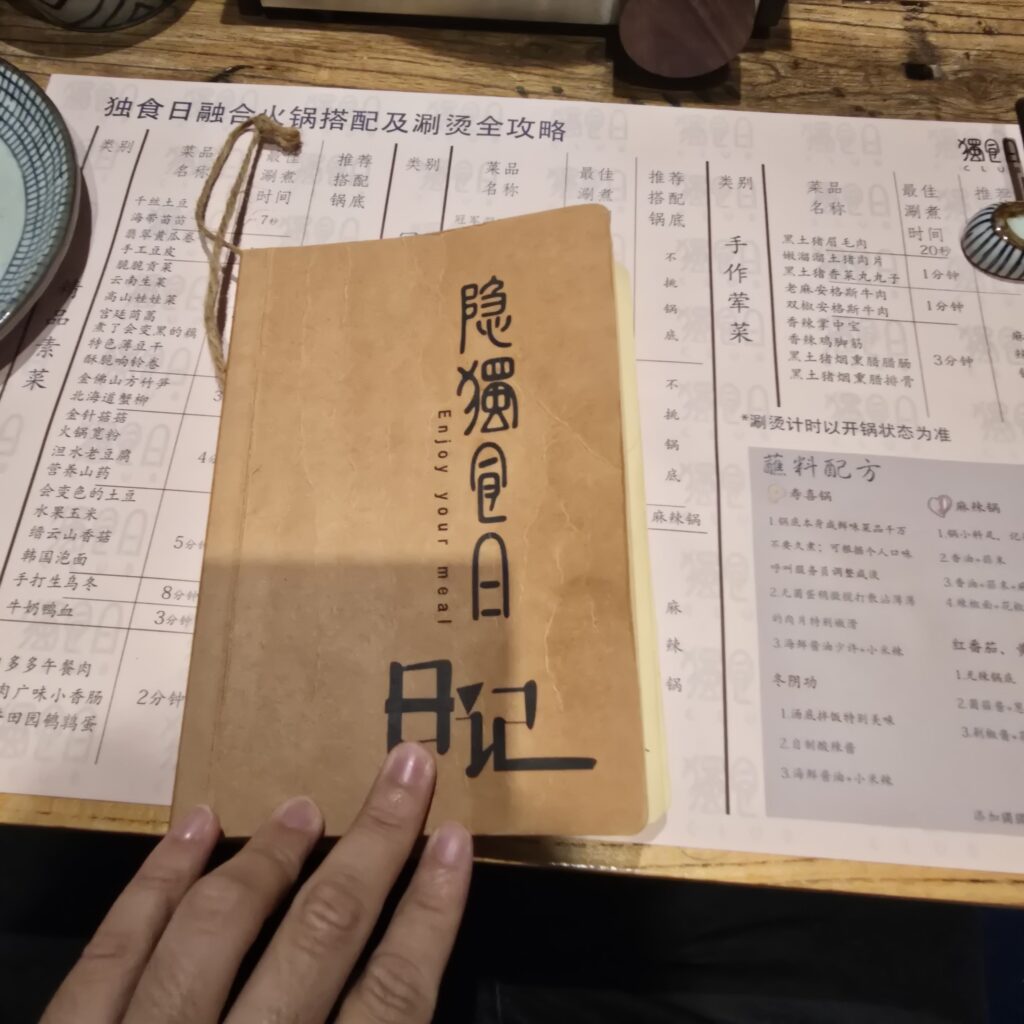 独食日融合火锅搭配及涮烫全攻略
类别
菜品
名称
最佳
涮煮
时间
推荐
搭配
锅底
素
菜
千丝土豆
海带苗苗
7秒
翡翠黄瓜卷
手工豆皮
脆脆贡菜
云南生菜
高山娃娃菜
宫廷茼蒿
煮了会变黑的藕
特色薄豆干
酥脆响铃卷
金佛山方竹笋
北海道蟹柳
金针菇菇
火锅宽粉
泹水老豆腐
营养山药
会变色的土豆
水果玉米
缙云山香菇
韩国泡面
5分钟
手打生乌冬
8分钟
牛奶鸭血
3分钟
多多午餐肉
肉广味小香肠
田园鹌鹑蛋
2分钟
类别
菜品
名称
最佳
涮煮
时间
推荐
搭配
锅底
不
挑
锅
底
不
挑
锅
底
麻辣锅
麻
辣
锅
类别
菜品
名称
最佳
涮煮
时间
推荐
手
作
荤
菜
黑土猪眉毛肉
20秒
嫩溜溜土猪肉片
黑土猪香菜丸丸子
1分钟
老麻安格斯牛肉
双椒安格斯牛肉
1分钟
香辣掌中宝
香辣鸡脚筋
黑土猪烟熏腊腊肠
黑土猪烟熏腊排骨
3分钟
*涮烫计时以开锅状态为准
蘸料配方
寿喜锅
1.锅底本身咸鲜味菜品千万
不要久煮;可根据个人口味
呼叫服务员调整咸淡
2.无菌蛋稍微搅打散沾薄薄
的肉片特别嫩滑
3.海鲜酱油少许+小米辣
冬阴功
1.汤底拌饭特别美味
2.自制酸辣酱
3.海鲜酱油+小米辣
麻辣锅
1.锅小料足,
2.香油+蒜米
3.香油+蒜米+
4.辣椒面+花椒
红番茄、
1.无辣锅底
2.菌菇酱+
3.剁椒酱+
隐獨食日
Enjoy your meal
日记